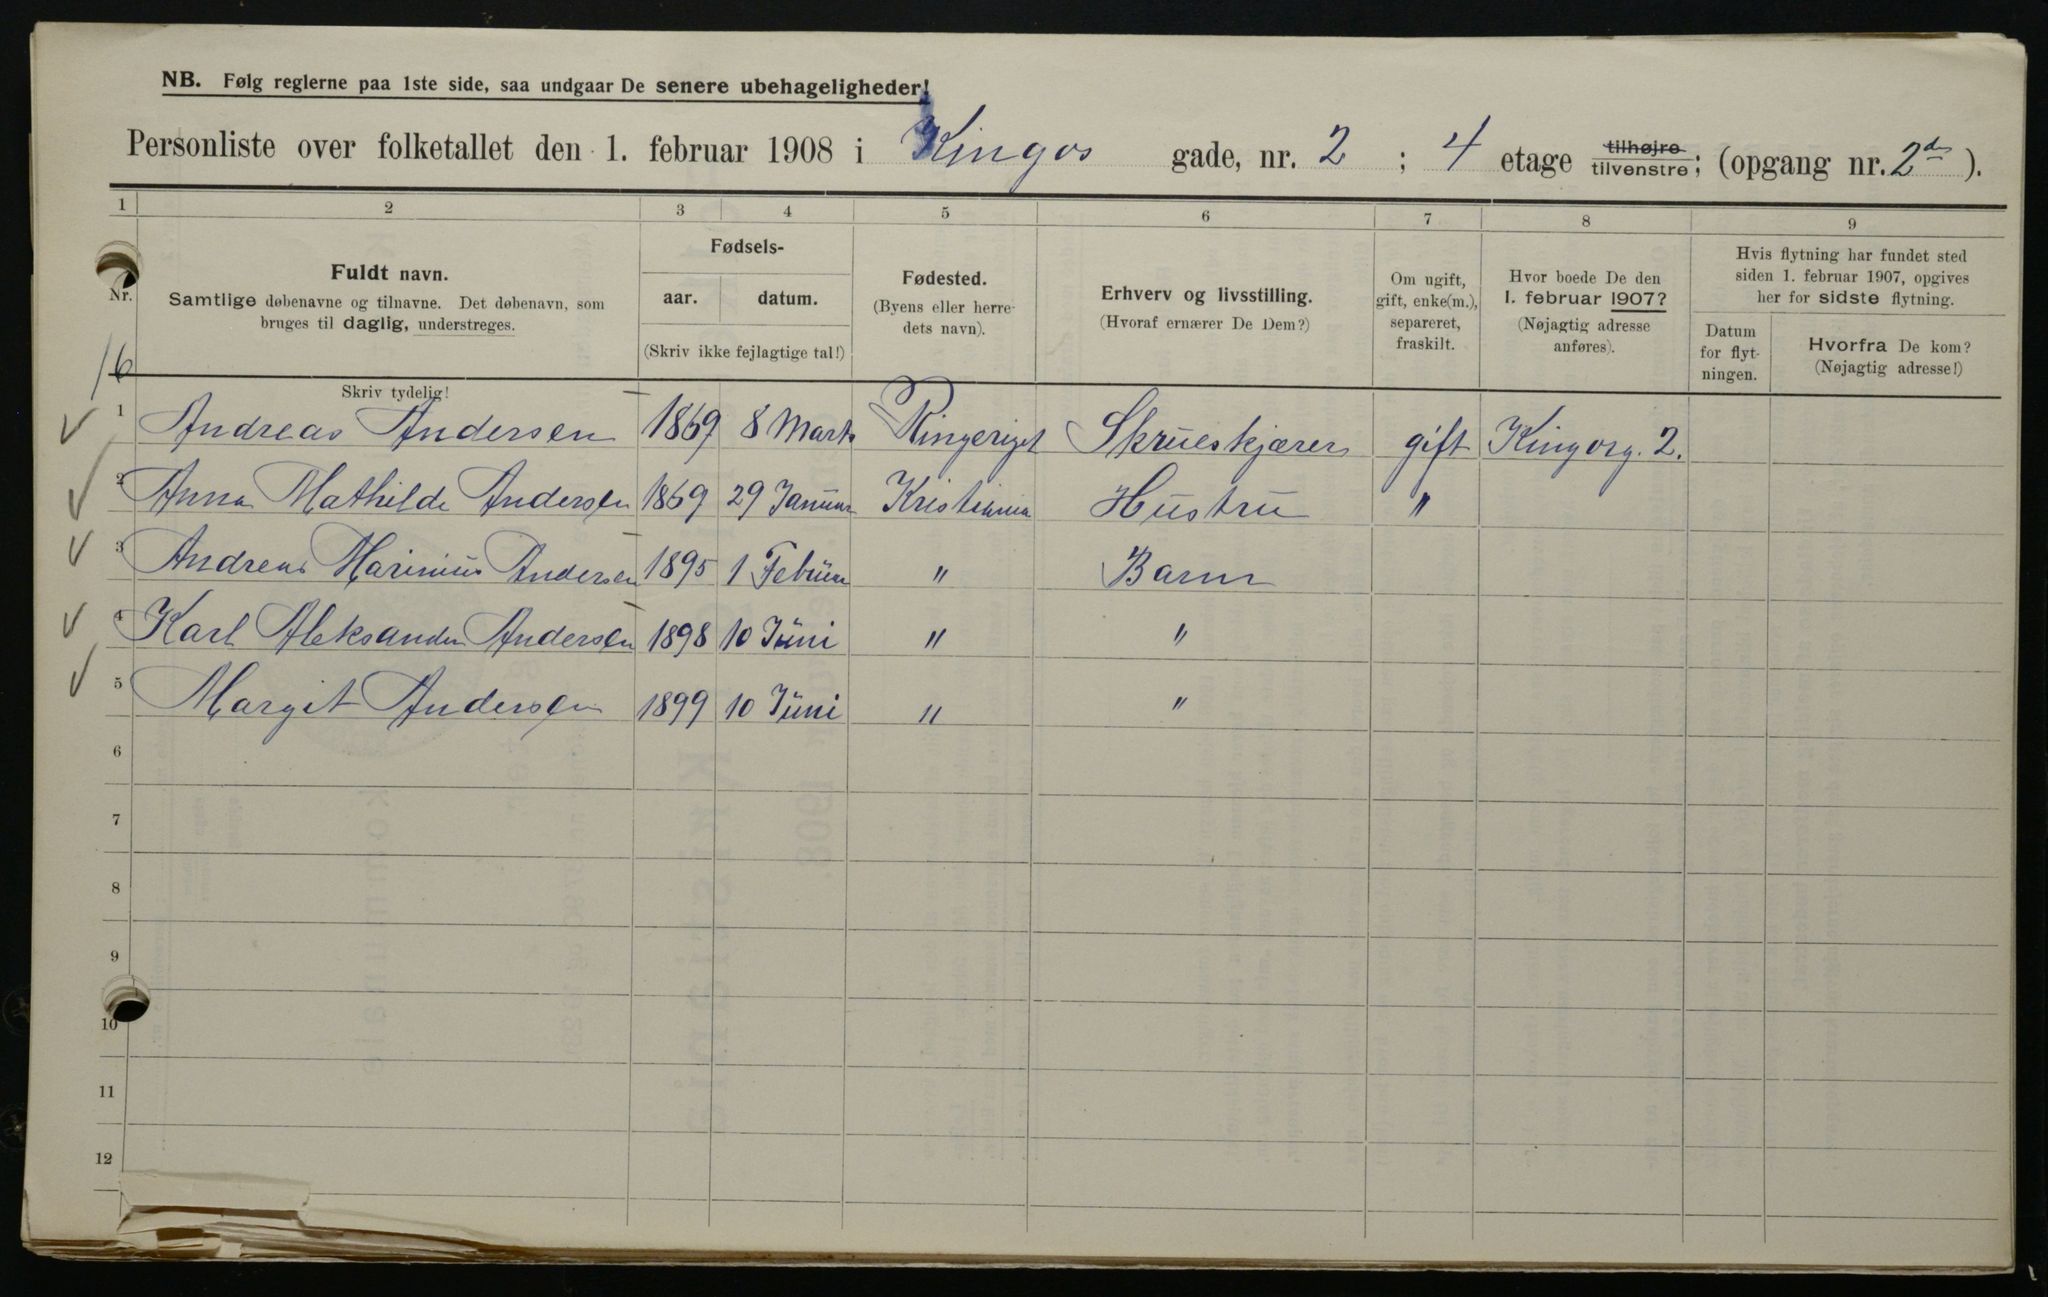 NB. Følg reglerne paa 1ste side, saa undgaar De senere ubehageligheder!
Personliste over folketallet den 1. februar 1908 i Kingos gade, nr. 2 ; 4 etage tilhøjre tilvenstre; (opgang nr. 2 ).
1 2 3 4 5 6 7 8 9
Nr.
Fuldt navn.
Samtlige døbenavne og tilnavne. Det døbenavn, som
bruges til daglig, understreges.
Fødsels-
aar. datum.
(Skriv ikke fejlagtige tal!)
Fødested.
(Byens eller herre-
dets navn).
Erhverv og livsstilling.
(Hvoraf ernærer De Dem?)
Om ugift,
gift, enke(m.),
separeret,
fraskilt.
Hvor boede De den
1. februar 1907?
(Nøjagtig adresse
anføres).
Hvis flytning har fundet sted
siden 1. februar 1907, opgives
her for sidste flytning.
Datum
for flyt-
ningen.
Hvorfra De kom?
(Nøjagtig adresse!)
16
Skriv tydelig!
1 Andreas Andersen 1869 8 Marts Ringeriget Skrueskjærer gift Kingosg. 2.
2 Anna Mathilde Andersen 1869 29 Januar Kristiania Hustru "
3 Andreas Marinius Andersen 1895 1 Februar " Barn
4 Karl Aleksander Andersen 1898 10 Juni " "
5 Margit Andersen 1899 10 Juni " "
6
7
8
9
10
11
12